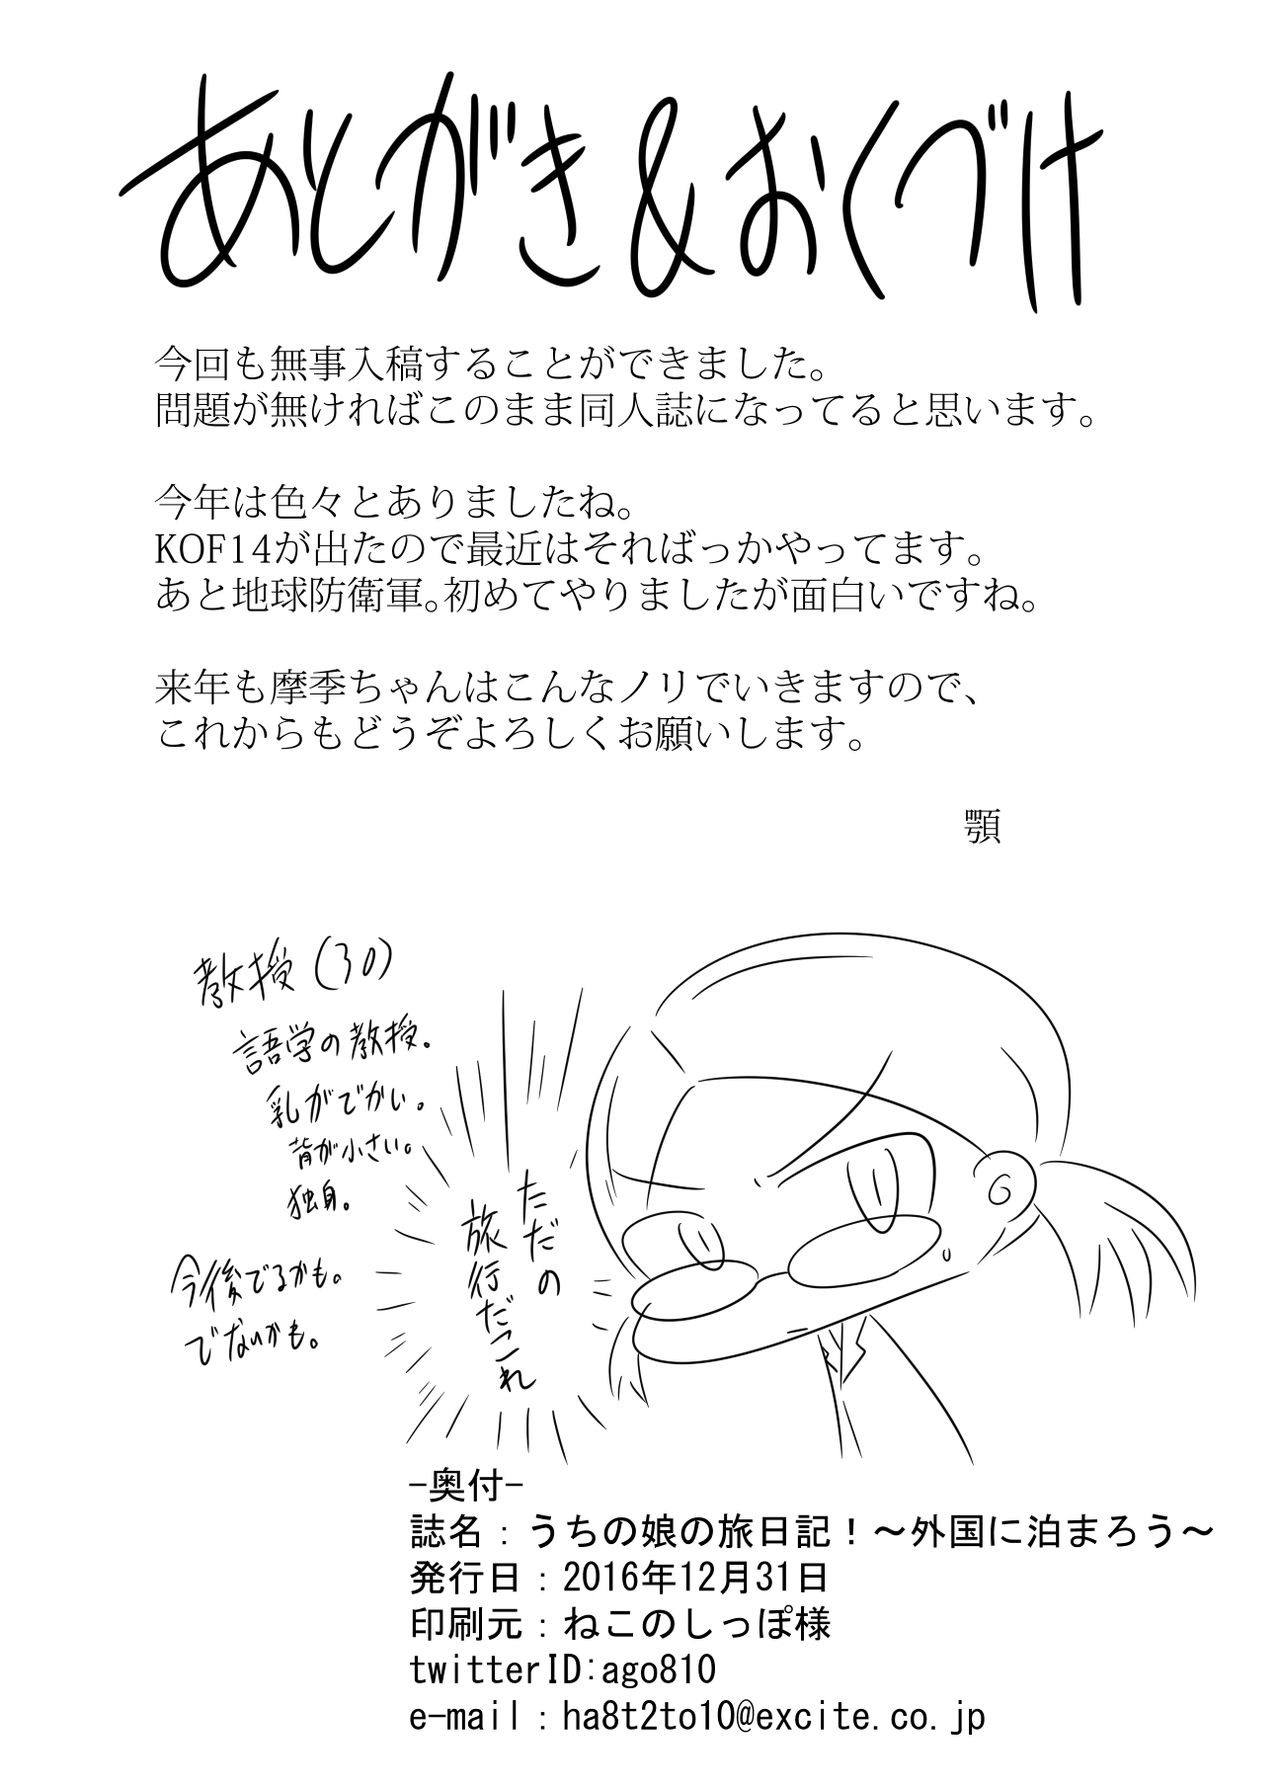 あとがき&おくづけ
今回も無事入稿することができました。
問題が無ければこのまま同人誌になってると思います。
今年は色々とありましたね。
KOF14が出たので最近はそればっかやってます。
あと地球防衛軍。初めてやりましたが面白いですね。
来年も摩季ちゃんはこんなノリでいきますので、
これからもどうぞよろしくお願いします。
顎
教授(30)
語学の教授。
乳がでかい。
背が小さい。
独身。
今後でるかも。
でないかも。
ただの
旅行だこれ
-奥付-
誌名:うちの娘の旅日記!～外国に泊まろう～
発行日:2016年12月31日
印刷元:ねこのしっぽ様
twitterID:ago810
e-mail:ha8t2to10@excite.co.jp